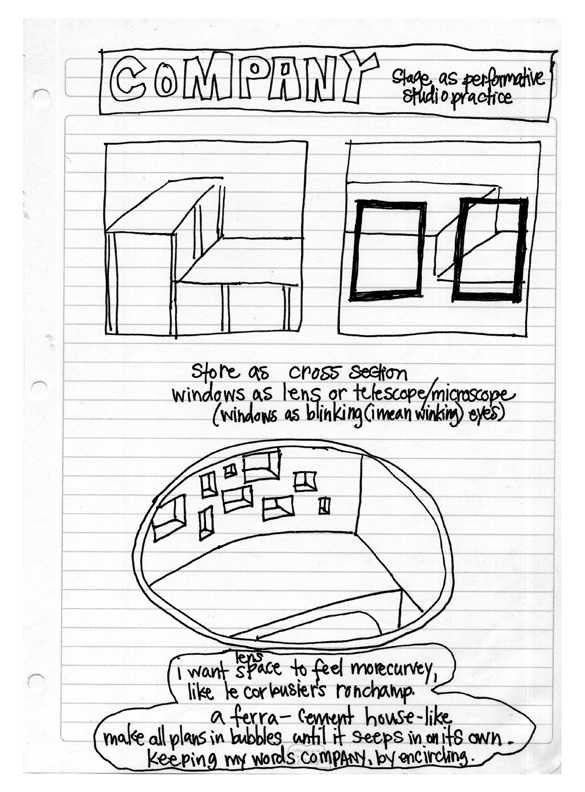 COMPANY
Stage as performative
studio practice
Store as cross section
windows as lens or telescope/microscope
(windows as blinking (i mean winking) eyes)
lens
i want space to feel more curvey,
like le corbusier's ronchamp.
a ferra-cement house-like
make all plans in bubbles until it seeps in on its own.
keeping my words COMPANY, by encircling.